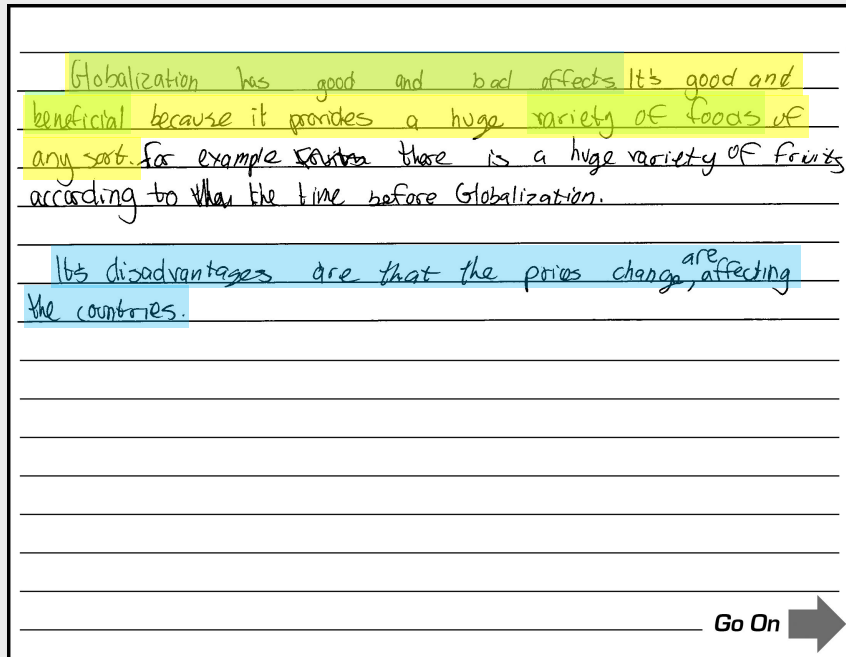 Globalization has good and bad affects. It's good and
beneficial because it provides a huge variety of foods of
any sort. for example there is a huge variety of fruits
according to the time before Globalization.
It's disadvantages are that the prices change, are affecting
the countries.
Go On